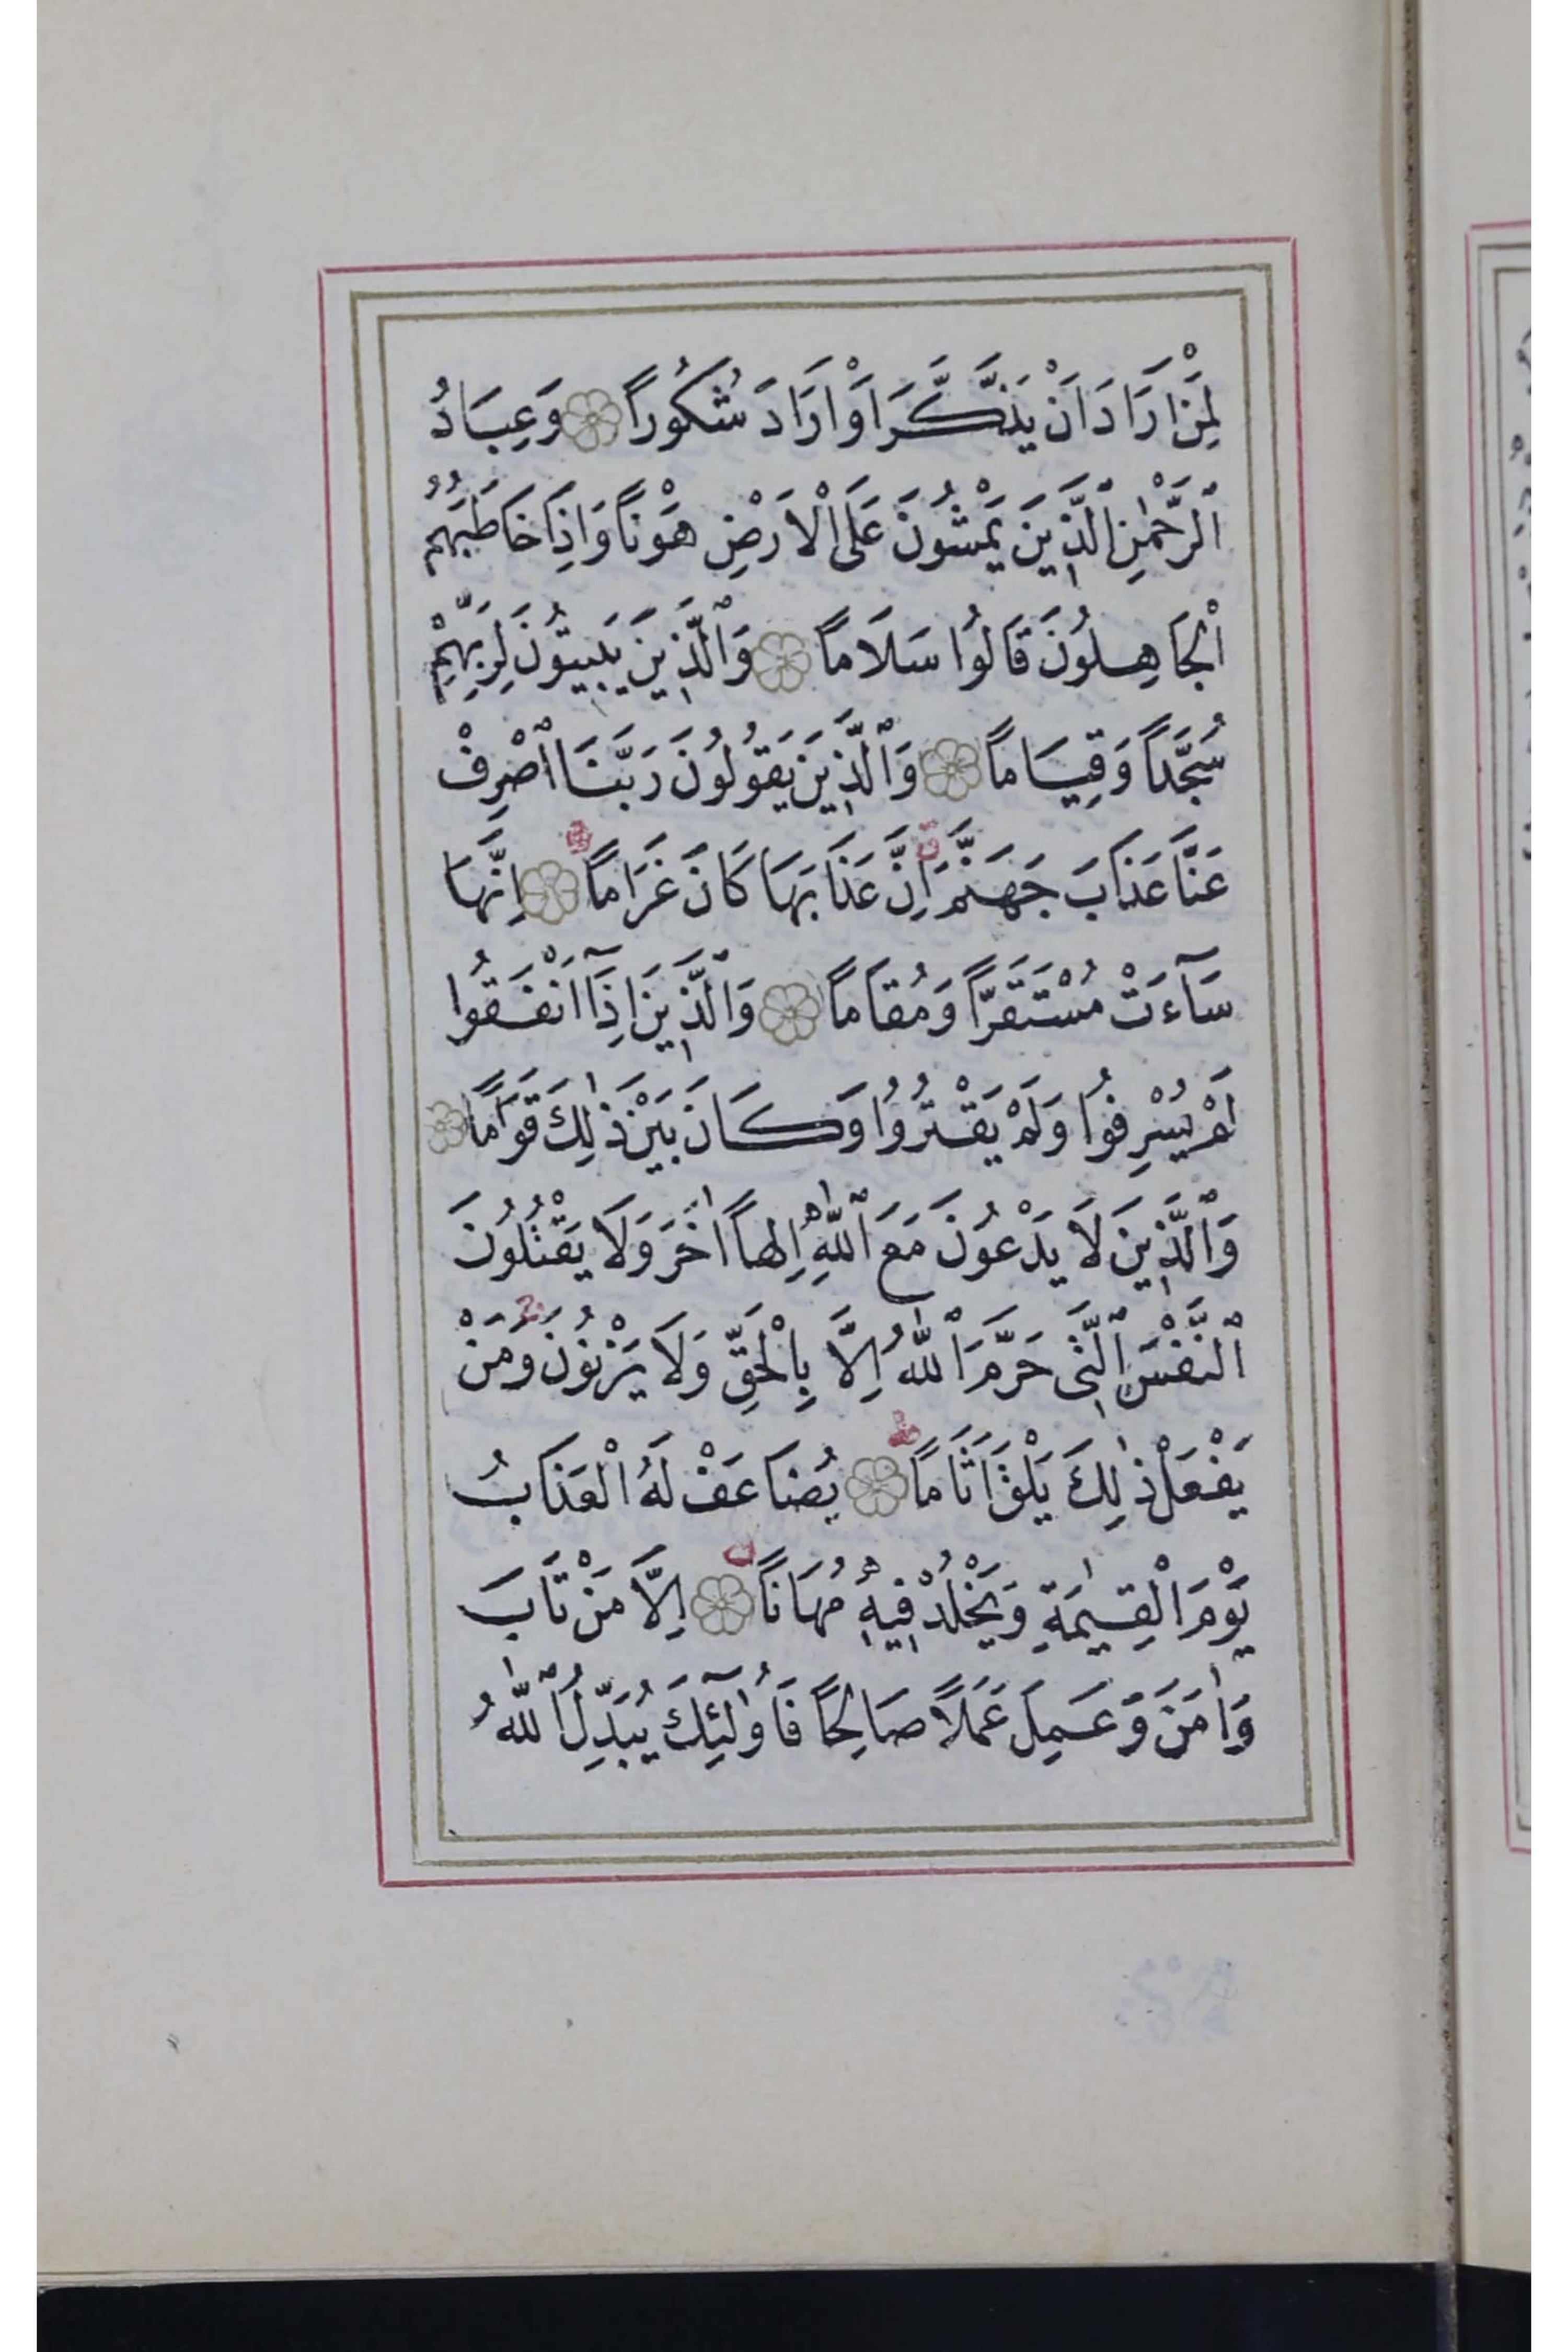 لِمَنْ اَرَادَ اَنْ يَذَّكَّرَ اَوْ اَرَادَ شُكُوراً وَعِبَادُ
ٱلرَّحْمٰنِ ٱلَّذِينَ يَمْشُونَ عَلَى الْاَرْضِ هَوْناً وَاِذَا خَاطَبَهُمُ
الْجَاهِلُونَ قَالُوا سَلَاماً وَٱلَّذِينَ يَبِيتُونَ لِرَبِّهِمْ
سُجَّداً وَقِيَاماً وَٱلَّذِينَ يَقُولُونَ رَبَّنَا ٱصْرِفْ
عَنَّا عَذَابَ جَهَنَّمَ اِنَّ عَذَابَهَا كَانَ غَرَاماً اِنَّهَا
سَآءَتْ مُسْتَقَرّاً وَمُقَاماً وَٱلَّذِينَ اِذَآ اَنْفَقُوا
لَمْ يُسْرِفُوا وَلَمْ يَقْتُرُوا وَكَانَ بَيْنَ ذٰلِكَ قَوَاماً
وَٱلَّذِينَ لَا يَدْعُونَ مَعَ ٱللّٰهِ اِلٰهاً اٰخَرَ وَلَا يَقْتُلُونَ
ٱلنَّفْسَ ٱلَّتِى حَرَّمَ ٱللّٰهُ اِلَّا بِالْحَقِّ وَلَا يَزْنُونَ وَمَنْ
يَفْعَلْ ذٰلِكَ يَلْقَ اَثَاماً يُضَاعَفْ لَهُ الْعَذَابُ
يَوْمَ الْقِيٰمَةِ وَيَخْلُدْ فِيهِ مُهَاناً اِلَّا مَنْ تَابَ
وَاٰمَنَ وَعَمِلَ عَمَلاً صَالِحاً فَاُولٰٓئِكَ يُبَدِّلُ ٱللّٰهُ